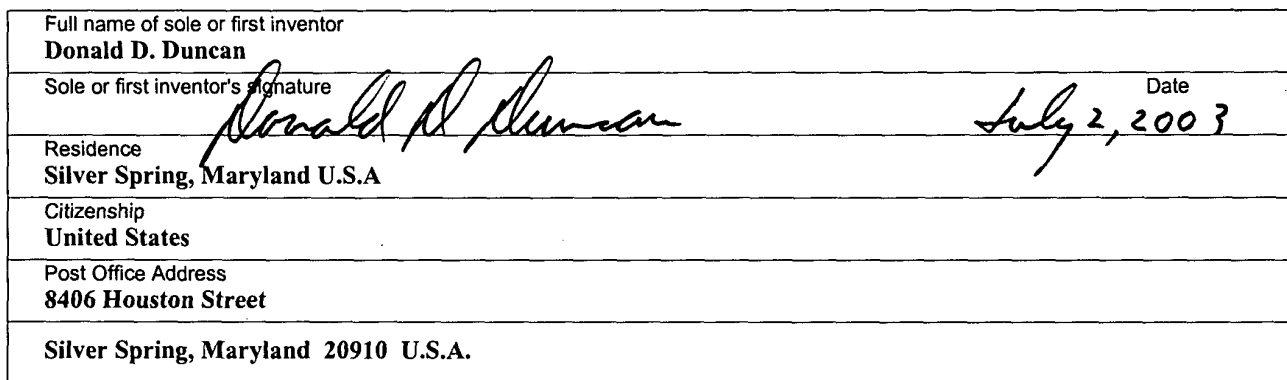 Full name of sole or first inventor
Donald D. Duncan
Sole or first inventor's signature
Date
Donald D Duncan
July 2, 2003
Residence
Silver Spring, Maryland U.S.A
Citizenship
United States
Post Office Address
8406 Houston Street
Silver Spring, Maryland 20910 U.S.A.